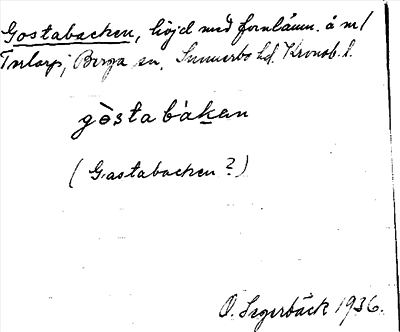 Gostabacken, höjd med fornlämn. å m/
Torlarp, Berga sn, Sunnerbo hd. Kronob. l.
gòstabàkan
(Gastabacken?)
O. Segerbäck 1936.